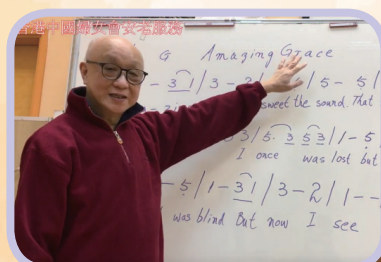 香港中國婦女會安老服務
G Amazing Grace
- 3 1 / 3 - 2 / 5 - 5 /
sweet the sound. That
3 / 5. 3 5 3 / 1 - 5
I once was lost but
- 5 / 1 - 3 1 / 3 - 2 / 1 - -
was blind But now I see